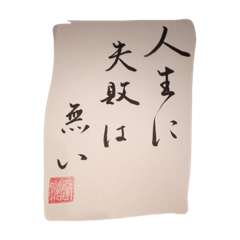 人生に
失敗は
無い